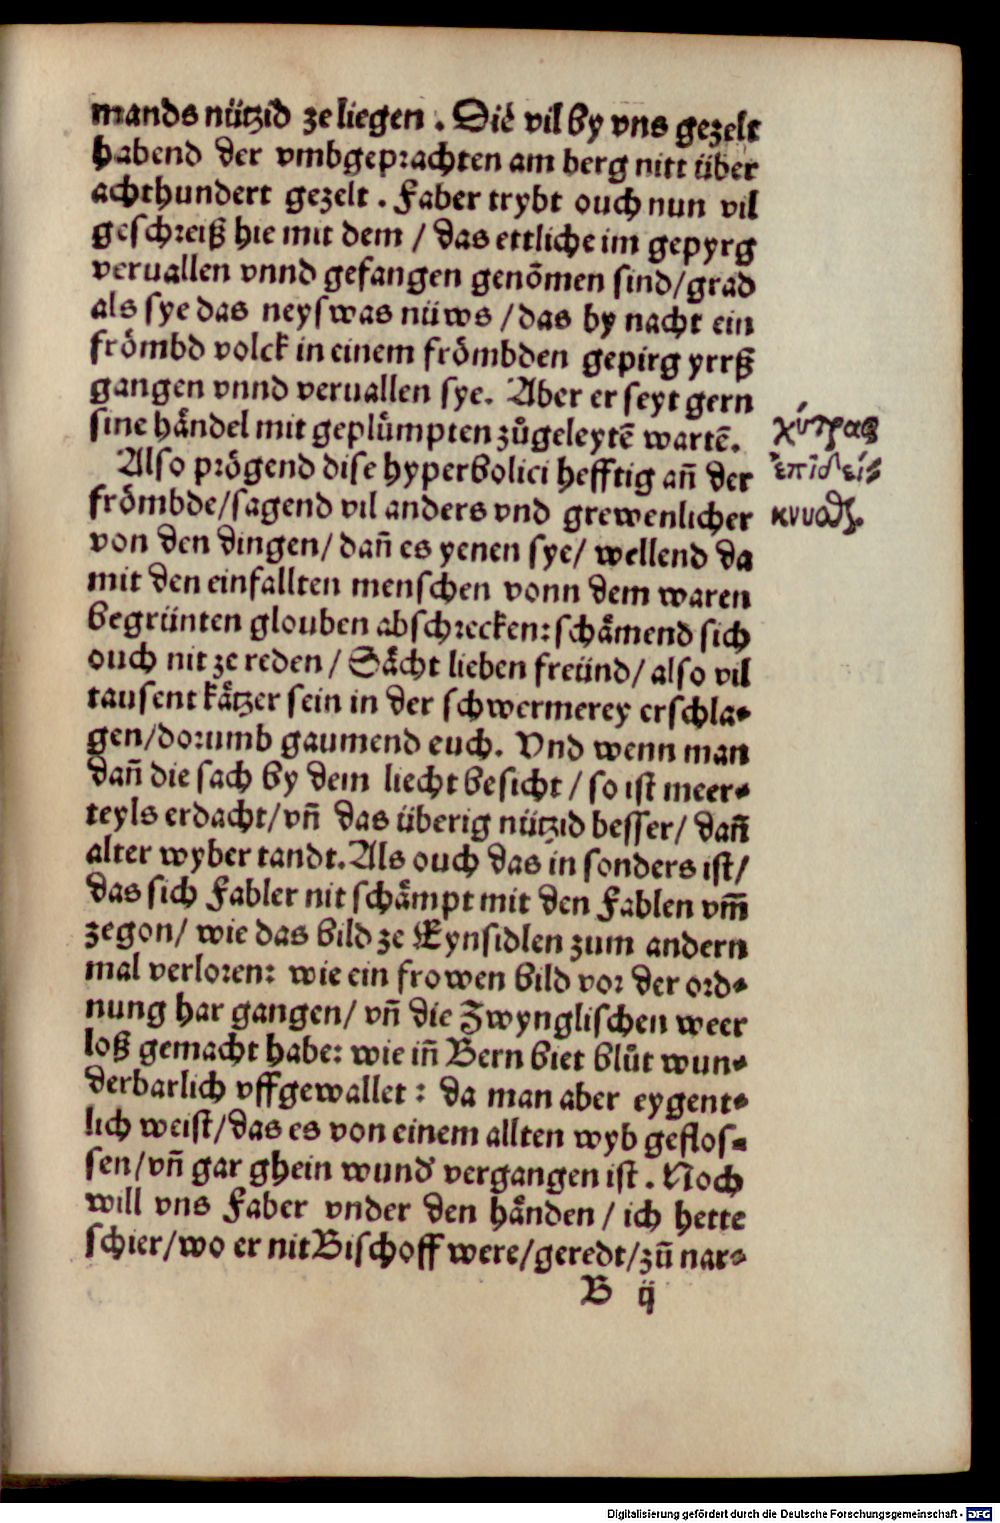 mands nützid ze liegen . Die vil by vns gezelt
habend der vmbgeprachten am berg nitt über
achthundert gezelt . Faber trybt ouch nun vil
geschreiß hie mit dem / das ettliche im gepyrg
veruallen vnnd gefangen genõmen sind/grad
als sye das neyswas nüws / das by nacht ein
frömbd volck in einem frömbden gepirg yrrß
gangen vnnd veruallen sye. Aber er seyt gern
sine håndel mit geplůmpten zůgeleytẽ wartẽ.
χύτρας
ἐπιδείκ
κνυσθ
Also prögend dise hyperbolici hefftig añ der
frömbde/sagend vil anders vnd grewenlicher
von den dingen/ dañ es yenen sye/ wellend da
mit den einfallten menschen vonn dem waren
begrünten glouben abschrecken: schåmend sich
ouch nit ze reden / Såcht lieben freünd/ also vil
tausent kåtzer sein in der schwermerey erschla-
gen/dorumb gaumend euch. Vnd wenn man
dañ die sach by dem liecht besicht / so ist meer-
teyls erdacht/vñ das überig nützid besser/ dañ
alter wyber tandt. Als ouch das in sonders ist/
das sich Fabler nit schåmpt mit den Fablen vm̃
zegon/ wie das bild ze Eynsidlen zum andern
mal verloren: wie ein frowen bild vor der ord-
nung har gangen/ vñ die Zwynglischen weer
loß gemacht habe: wie iñ Bern biet blůt wun-
derbarlich vffgewallet : da man aber eygent-
lich weist/das es von einem allten wyb geflos-
sen/vñ gar ghein wund vergangen ist . Noch
will vns Faber vnder den hånden / ich hette
schier/wo er nit Bischoff were/geredt/zů nar-
B ij
Digitalisierung gefördert durch die Deutsche Forschungsgemeinschaft - DFG